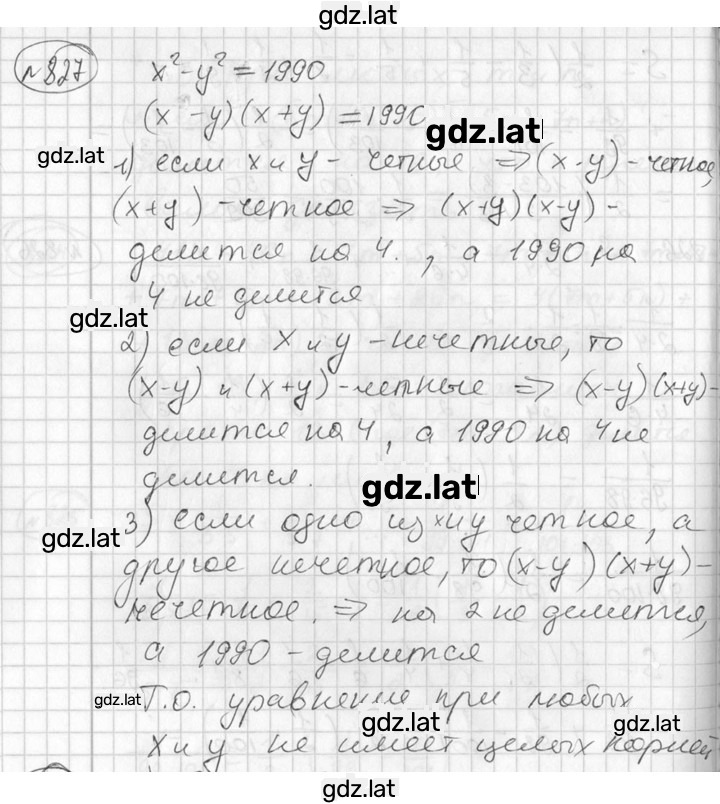 gdz.lat
№827
x²-y²=1990
(x-y)(x+y)=1990
gdz.lat
gdz.lat
1) если x и y - четные ⇒ (x-y) - четное,
(x+y) - четное ⇒ (x+y)(x-y) -
делится на 4., а 1990 на
4 не делится
gdz.lat
2) если x и y - нечетные, то
(x-y) и (x+y) - четные ⇒ (x-y)(x+y) -
делится на 4, а 1990 на 4 не
делится.
gdz.lat
3) если одно из x и y четное, а
gdz.lat
другое нечетное, то (x-y)(x+y) -
нечетное. ⇒ на 2 не делится,
а 1990 - делится
gdz.lat
Т.о. уравнение при любых
gdz.lat
gdz.lat
x и y не имеет целых корней
gdz.lat